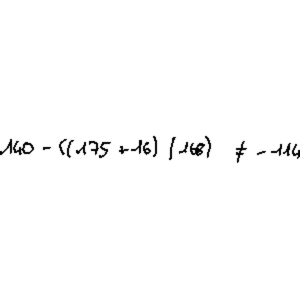 140 - ((175 + 16) / 168) ≠ -114